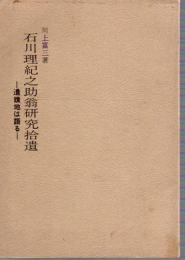 川上富三著
石川理紀之助翁研究拾遺
―遺蹟地は語る―